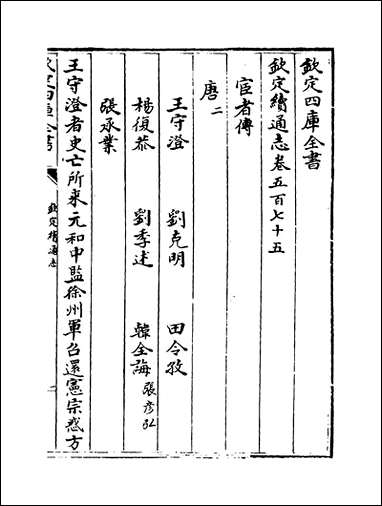 欽定四庫全書
欽定續通志卷五百七十五
宦者傳
唐二
王守澄 劉克明 田令孜
楊復恭 劉季述 韓全誨張彥弘
張承業
王守澄者史亡所來元和中監徐州軍召還憲宗惑方
欽定四庫全書
欽定續通志